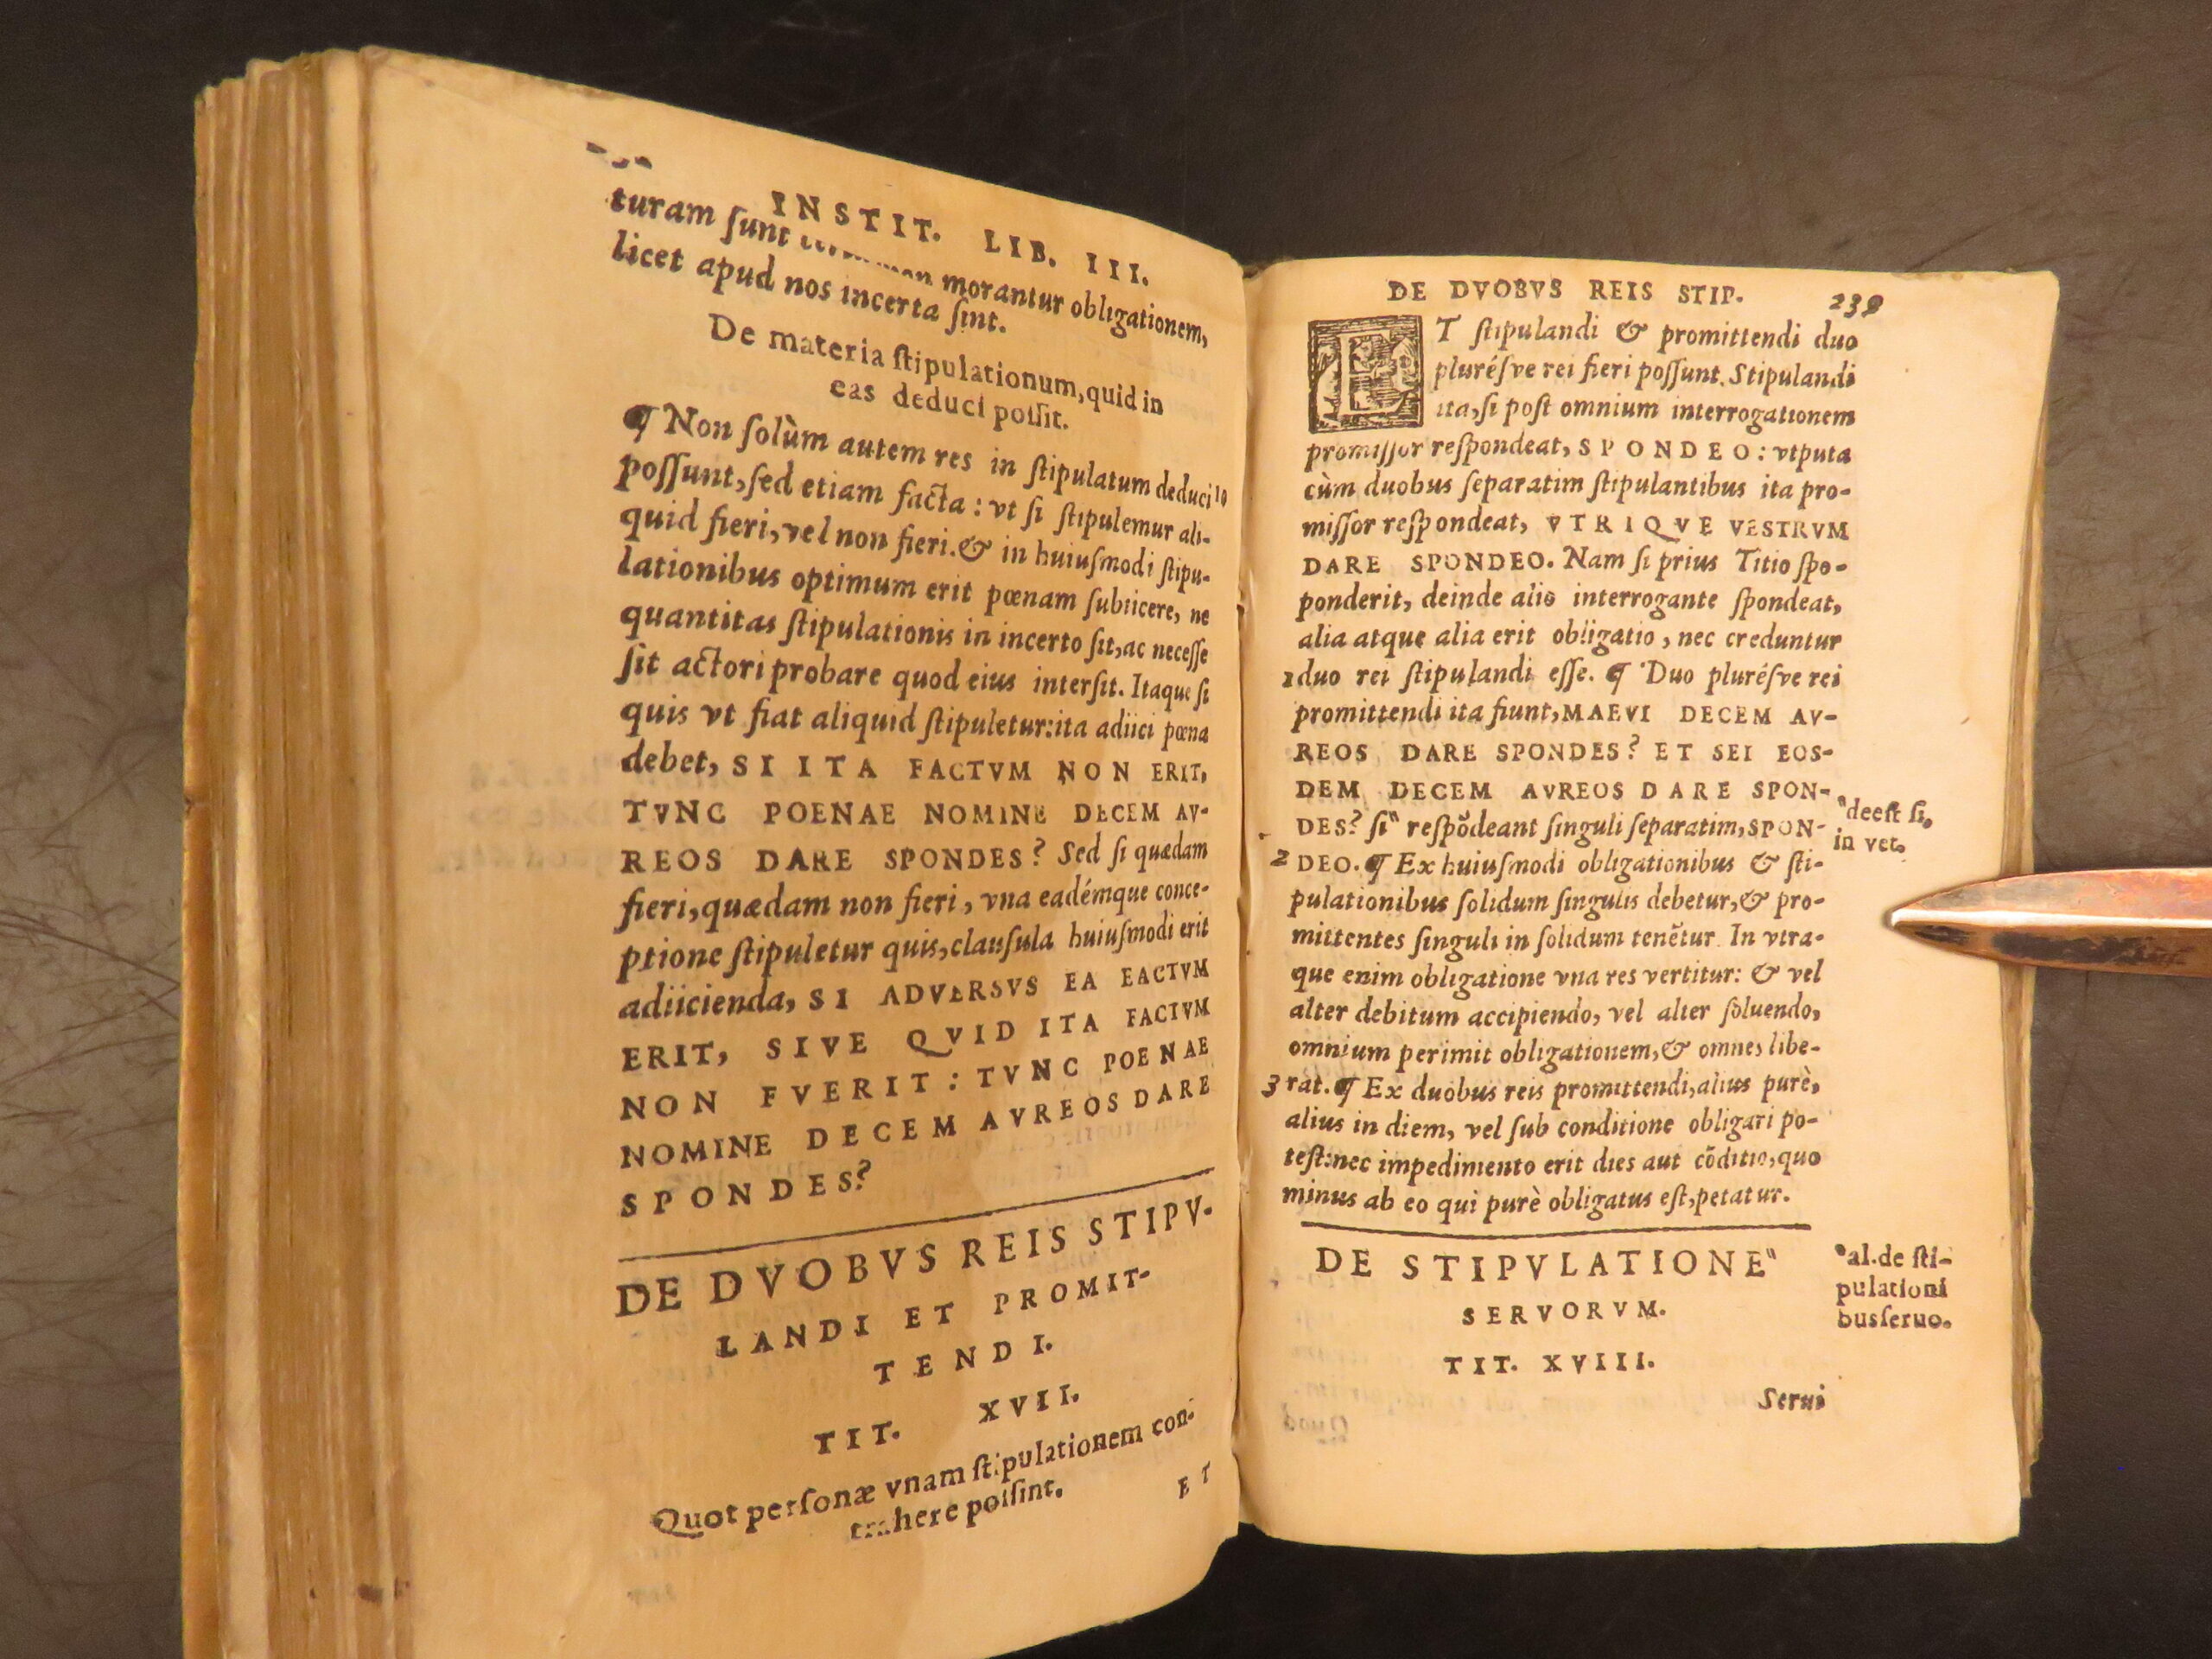 INSTIT. LIB. III.
turam ſunt morantur obligationem,
licet apud nos incerta ſint.
De materia ſtipulationum, quid in
eas deduci poſſit.
¶ Non ſolùm autem res in ſtipulatum deduci
poſſunt, ſed etiam facta : vt ſi ſtipulemur ali-
quid fieri, vel non fieri. & in huiuſmodi ſtipu-
lationibus optimum erit pœnam ſubiicere, ne
quantitas ſtipulationis in incerto ſit, ac neceſſe
ſit actori probare quod eius interſit. Itaque ſi
quis vt fiat aliquid ſtipuletur: ita adiici pœna
debet, SI ITA FACTVM NON ERIT,
TVNC POENAE NOMINE DECEM AV-
REOS DARE SPONDES? Sed ſi quædam
fieri, quædam non fieri, vna eadémque conce-
ptione ſtipuletur quis, clauſula huiuſmodi erit
adiicienda, SI ADVERSVS EA EACTVM
ERIT, SIVE QVID ITA FACTVM
NON FVERIT : TVNC POENAE
NOMINE DECEM AVREOS DARE
SPONDES?
DE DVOBVS REIS STIPV-
LANDI ET PROMIT-
TENDI.
TIT. XVII.
Quot perſonæ vnam ſtipulationem con-
trahere poſſint.
ET
DE DVOBVS REIS STIP. 239
ET ſtipulandi & promittendi duo
pluréſve rei fieri poſſunt. Stipulandi
ita, ſi poſt omnium interrogationem
promiſſor reſpondeat, SPONDEO : vtputa
cùm duobus ſeparatim ſtipulantibus ita pro-
miſſor reſpondeat, VTRIQVE VESTRVM
DARE SPONDEO. Nam ſi prius Titio ſpo-
ponderit, deinde alio interrogante ſpondeat,
alia atque alia erit obligatio, nec creduntur
1 duo rei ſtipulandi eſſe. ¶ Duo pluréſve rei
promittendi ita fiunt, MAEVI DECEM AV-
REOS DARE SPONDES? ET SEI EOS-
DEM DECEM AVREOS DARE SPON-
DES? ſi" reſpōdeant ſinguli ſeparatim, SPON-
"deeſt ſi,
in vet.
2 DEO. ¶ Ex huiuſmodi obligationibus & ſti-
pulationibus ſolidum ſingulis debetur, & pro-
mittentes ſinguli in ſolidum tenētur. In vtra-
que enim obligatione vna res vertitur: & vel
alter debitum accipiendo, vel alter ſoluendo,
omnium perimit obligationem, & omnes libe-
3 rat. ¶ Ex duobus reis promittendi, alius purè,
alius in diem, vel ſub conditione obligari po-
teſt: nec impedimento erit dies aut cōditio, quo
minus ab eo qui purè obligatus eſt, petatur.
DE STIPVLATIONE"
SERVORVM.
TIT. XVIII.
"al. de ſti-
pulationi
bus ſeruo.
Serui